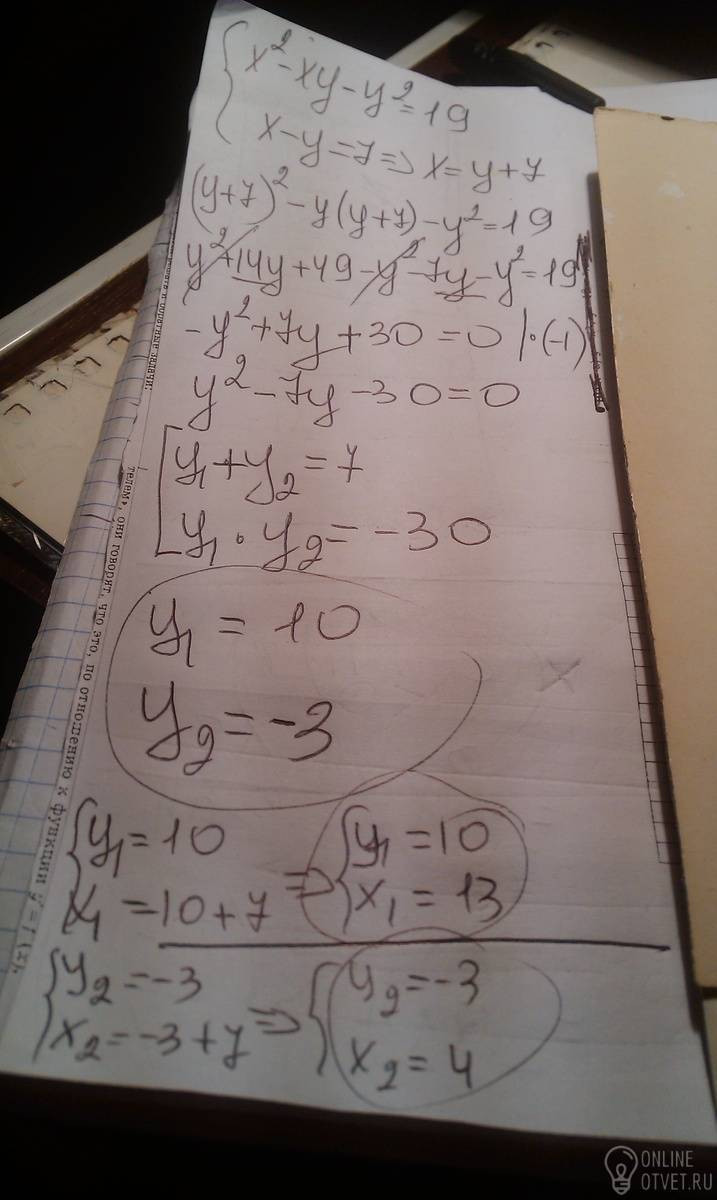 { x² - xy - y² = 19
x - y = 7 => x = y + 7
(y+7)² - y(y+7) - y² = 19
y² + 14y + 49 - y² - 7y - y² = 19
-y² + 7y + 30 = 0 | · (-1)
y² - 7y - 30 = 0
[ y₁ + y₂ = 7
y₁ · y₂ = -30
y₁ = 10
y₂ = -3
{ y₁ = 10
x₁ = 10 + 7
=> { y₁ = 10
x₁ = 13
{ y₂ = -3
x₂ = -3 + 7
=> { y₂ = -3
x₂ = 4
и обратные задачи.
телем, они говорят, что это, по отношению к функции y = f (x),
ONLINE
OTVET.RU